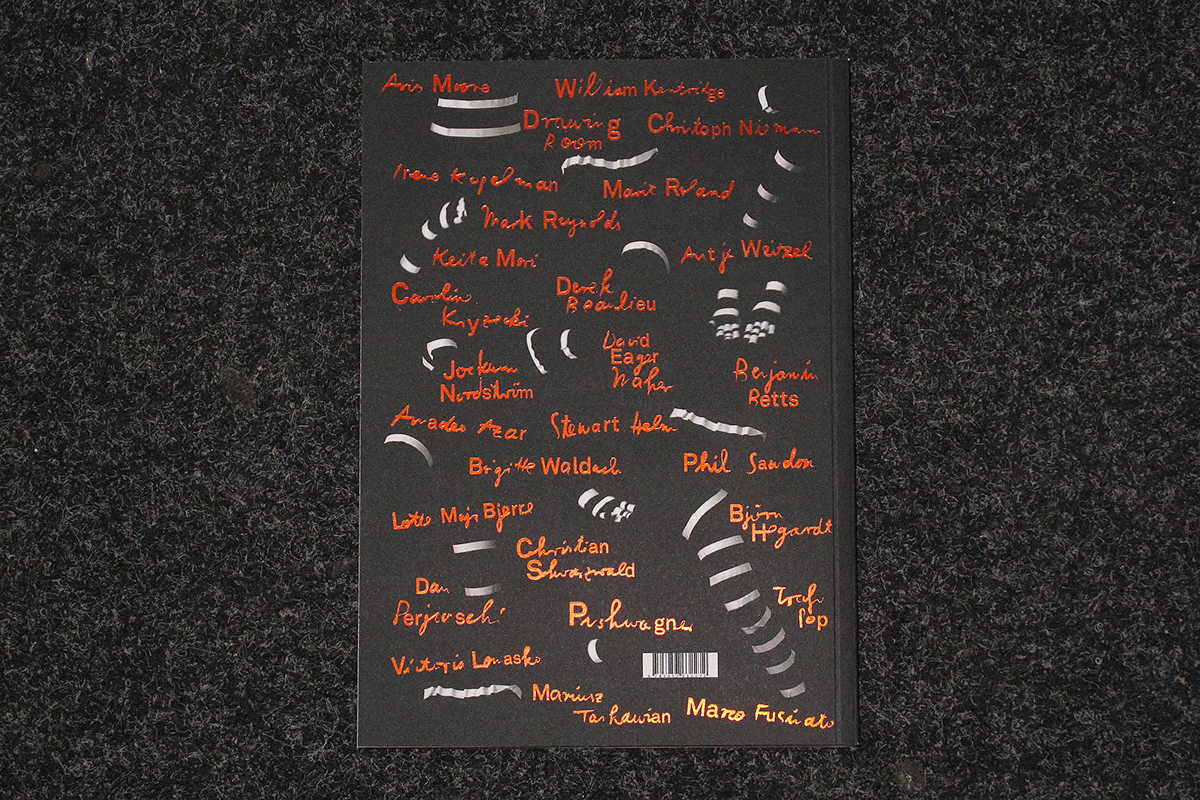 Aris Moore
William Kentridge
Drawing
Room
Christoph Niemann
Irene Kopelman
Marit Roland
Mark Reynolds
Keita Mori
Antje Weitzel
Carolina
Kryzecki
Derek
Beaulieu
David
Eager
Maher
Jockum
Nordström
Benjamin
Betts
Amadeo Azar
Stewart Helm
Brigitte Waldach
Phil Sawdon
Lotte Maja Bjerre
Björn
Hegardt
Christian
Schwarzwald
Dan
Perjovschi
Pushwagner
Pop
Victoria Lomasko
Mariusz
Tarkawian
Marco Fusinato